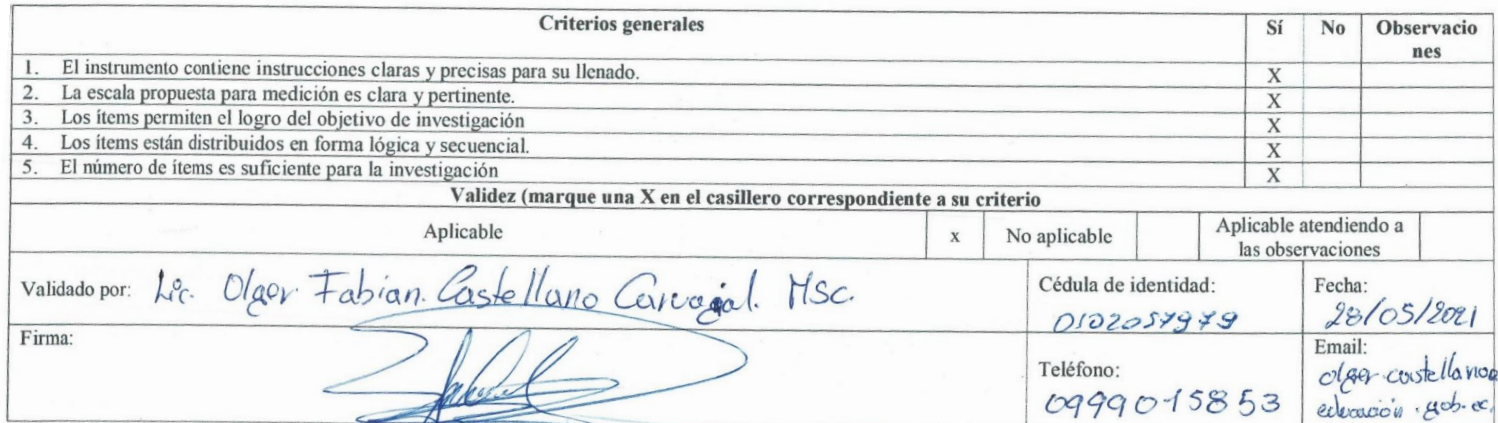 Criterios generales Sí No Observacio
nes
1. El instrumento contiene instrucciones claras y precisas para su llenado. X
2. La escala propuesta para medición es clara y pertinente. X
3. Los ítems permiten el logro del objetivo de investigación X
4. Los ítems están distribuidos en forma lógica y secuencial. X
5. El número de ítems es suficiente para la investigación X
Validez (marque una X en el casillero correspondiente a su criterio
Aplicable x No aplicable Aplicable atendiendo a
las observaciones
Validado por: Lic. Olger Fabian. Castellano Carvajal. MSc.
Cédula de identidad:
0102057979
Fecha:
28/05/2021
Firma:
Teléfono:
0999015853
Email:
olger.castellano@
educación.gob.ec.